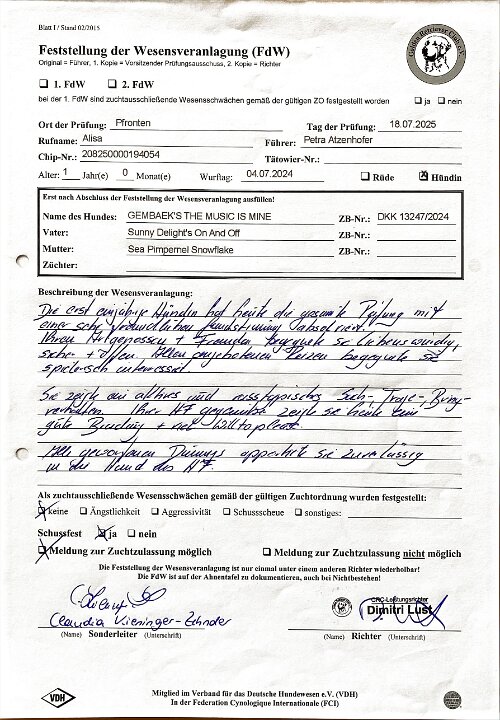 Blatt I / Stand 02/2015
Feststellung der Wesensveranlagung (FdW)
Original = Führer, 1. Kopie = Vorsitzender Prüfungsausschuss, 2. Kopie = Richter
1. FdW 2. FdW
bei der 1. FdW sind zuchtausschließende Wesensschwächen gemäß der gültigen ZO festgestellt worden ja nein
Ort der Prüfung: Pfronten Tag der Prüfung: 18.07.2025
Rufname: Alisa Führer: Petra Atzenhofer
Chip-Nr.: 208250000194054 Tätowier-Nr.:
Alter: 1 Jahr(e) 0 Monat(e) Wurftag: 04.07.2024 Rüde Hündin
Erst nach Abschluss der Feststellung der Wesensveranlagung ausfüllen!
Name des Hundes: GEMBAEK'S THE MUSIC IS MINE ZB-Nr.: DKK 13247/2024
Vater: Sunny Delight's On And Off ZB-Nr.:
Mutter: Sea Pimpernel Snowflake ZB-Nr.:
Züchter:
Beschreibung der Wesensveranlagung:
Die erst einjährige Hündin hat heute die gesamte Prüfung mit
einer sehr freundlichen Grundstimmung absolviert.
Ihren Artgenossen + Fremden begegnete sie liebenswürdig,
sicher + offen. Allen angebotenen Reizen begegnete sie
spielerisch interessiert.
Sie zeigte ein aktives und rassetypisches Such-, Trage-, Bring-
verhalten. Ihrer HF gegenüber zeigte sie heute eine
gute Bindung + viel Will to please.
Alle geworfenen Dummys apportierte sie zuverlässig
in die Hand des HF.
Als zuchtausschließende Wesensschwächen gemäß der gültigen Zuchtordnung wurden festgestellt:
keine Ängstlichkeit Aggressivität Schussscheue sonstiges:
Schussfest ja nein
Meldung zur Zuchtzulassung möglich Meldung zur Zuchtzulassung nicht möglich
Die Feststellung der Wesensveranlagung ist nur einmal unter einem anderen Richter wiederholbar!
Die FdW ist auf der Ahnentafel zu dokumentieren, auch bei Nichtbestehen!
GRC-Leistungsrichter
Dimitri Lust
Claudia Vieninger-Zehnder
(Name) Sonderleiter (Unterschrift) (Name) Richter (Unterschrift)
VDH
Mitglied im Verband für das Deutsche Hundewesen e.V. (VDH)
In der Federation Cynologique Internationale (FCI)